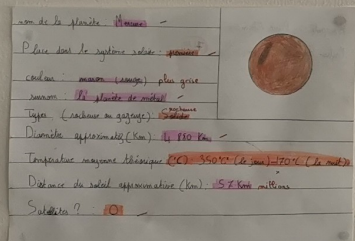 nom de la planète Mercure
Place dans le système solaire : première
couleur : marron (rouge) plus grise
surnom : la planète de métal
Types (rocheuse ou gazeuse) Solide rocheuse
Diamètre approximatif (Km) : 4 880 Km
Température moyenne théorique (°C) : 350°C (le jour) -170°C (la nuit)
Distance du soleil approximative (Km) : 57 Km millions
Satellites ? : 0